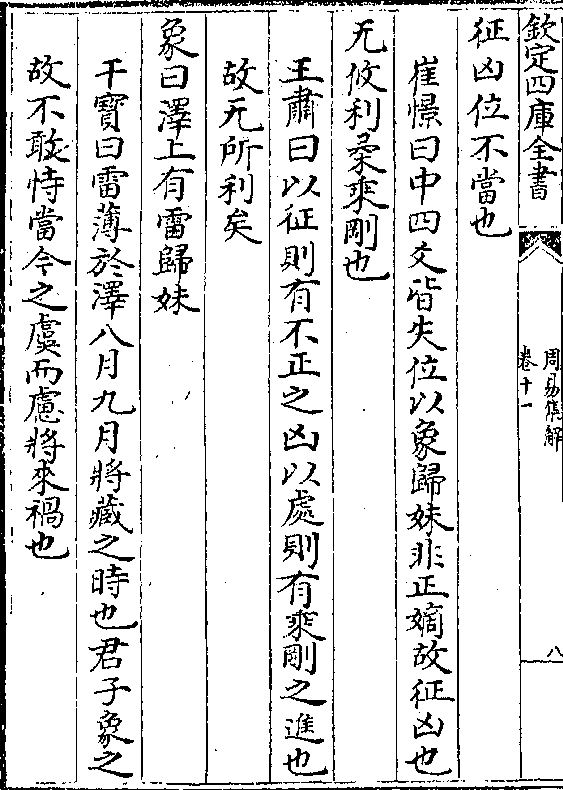 欽定四庫全書
周易集解
卷十一
八
征凶位不當也
崔憬曰中四爻皆失位以象歸妹非正嫡故征凶也
无攸利柔乘剛也
王肅曰以征則有不正之凶以處則有乘剛之進也
故无所利矣
象曰澤上有雷歸妹
干寶曰雷薄於澤八月九月將藏之時也君子象之
故不敢恃當今之虞而慮將來禍也